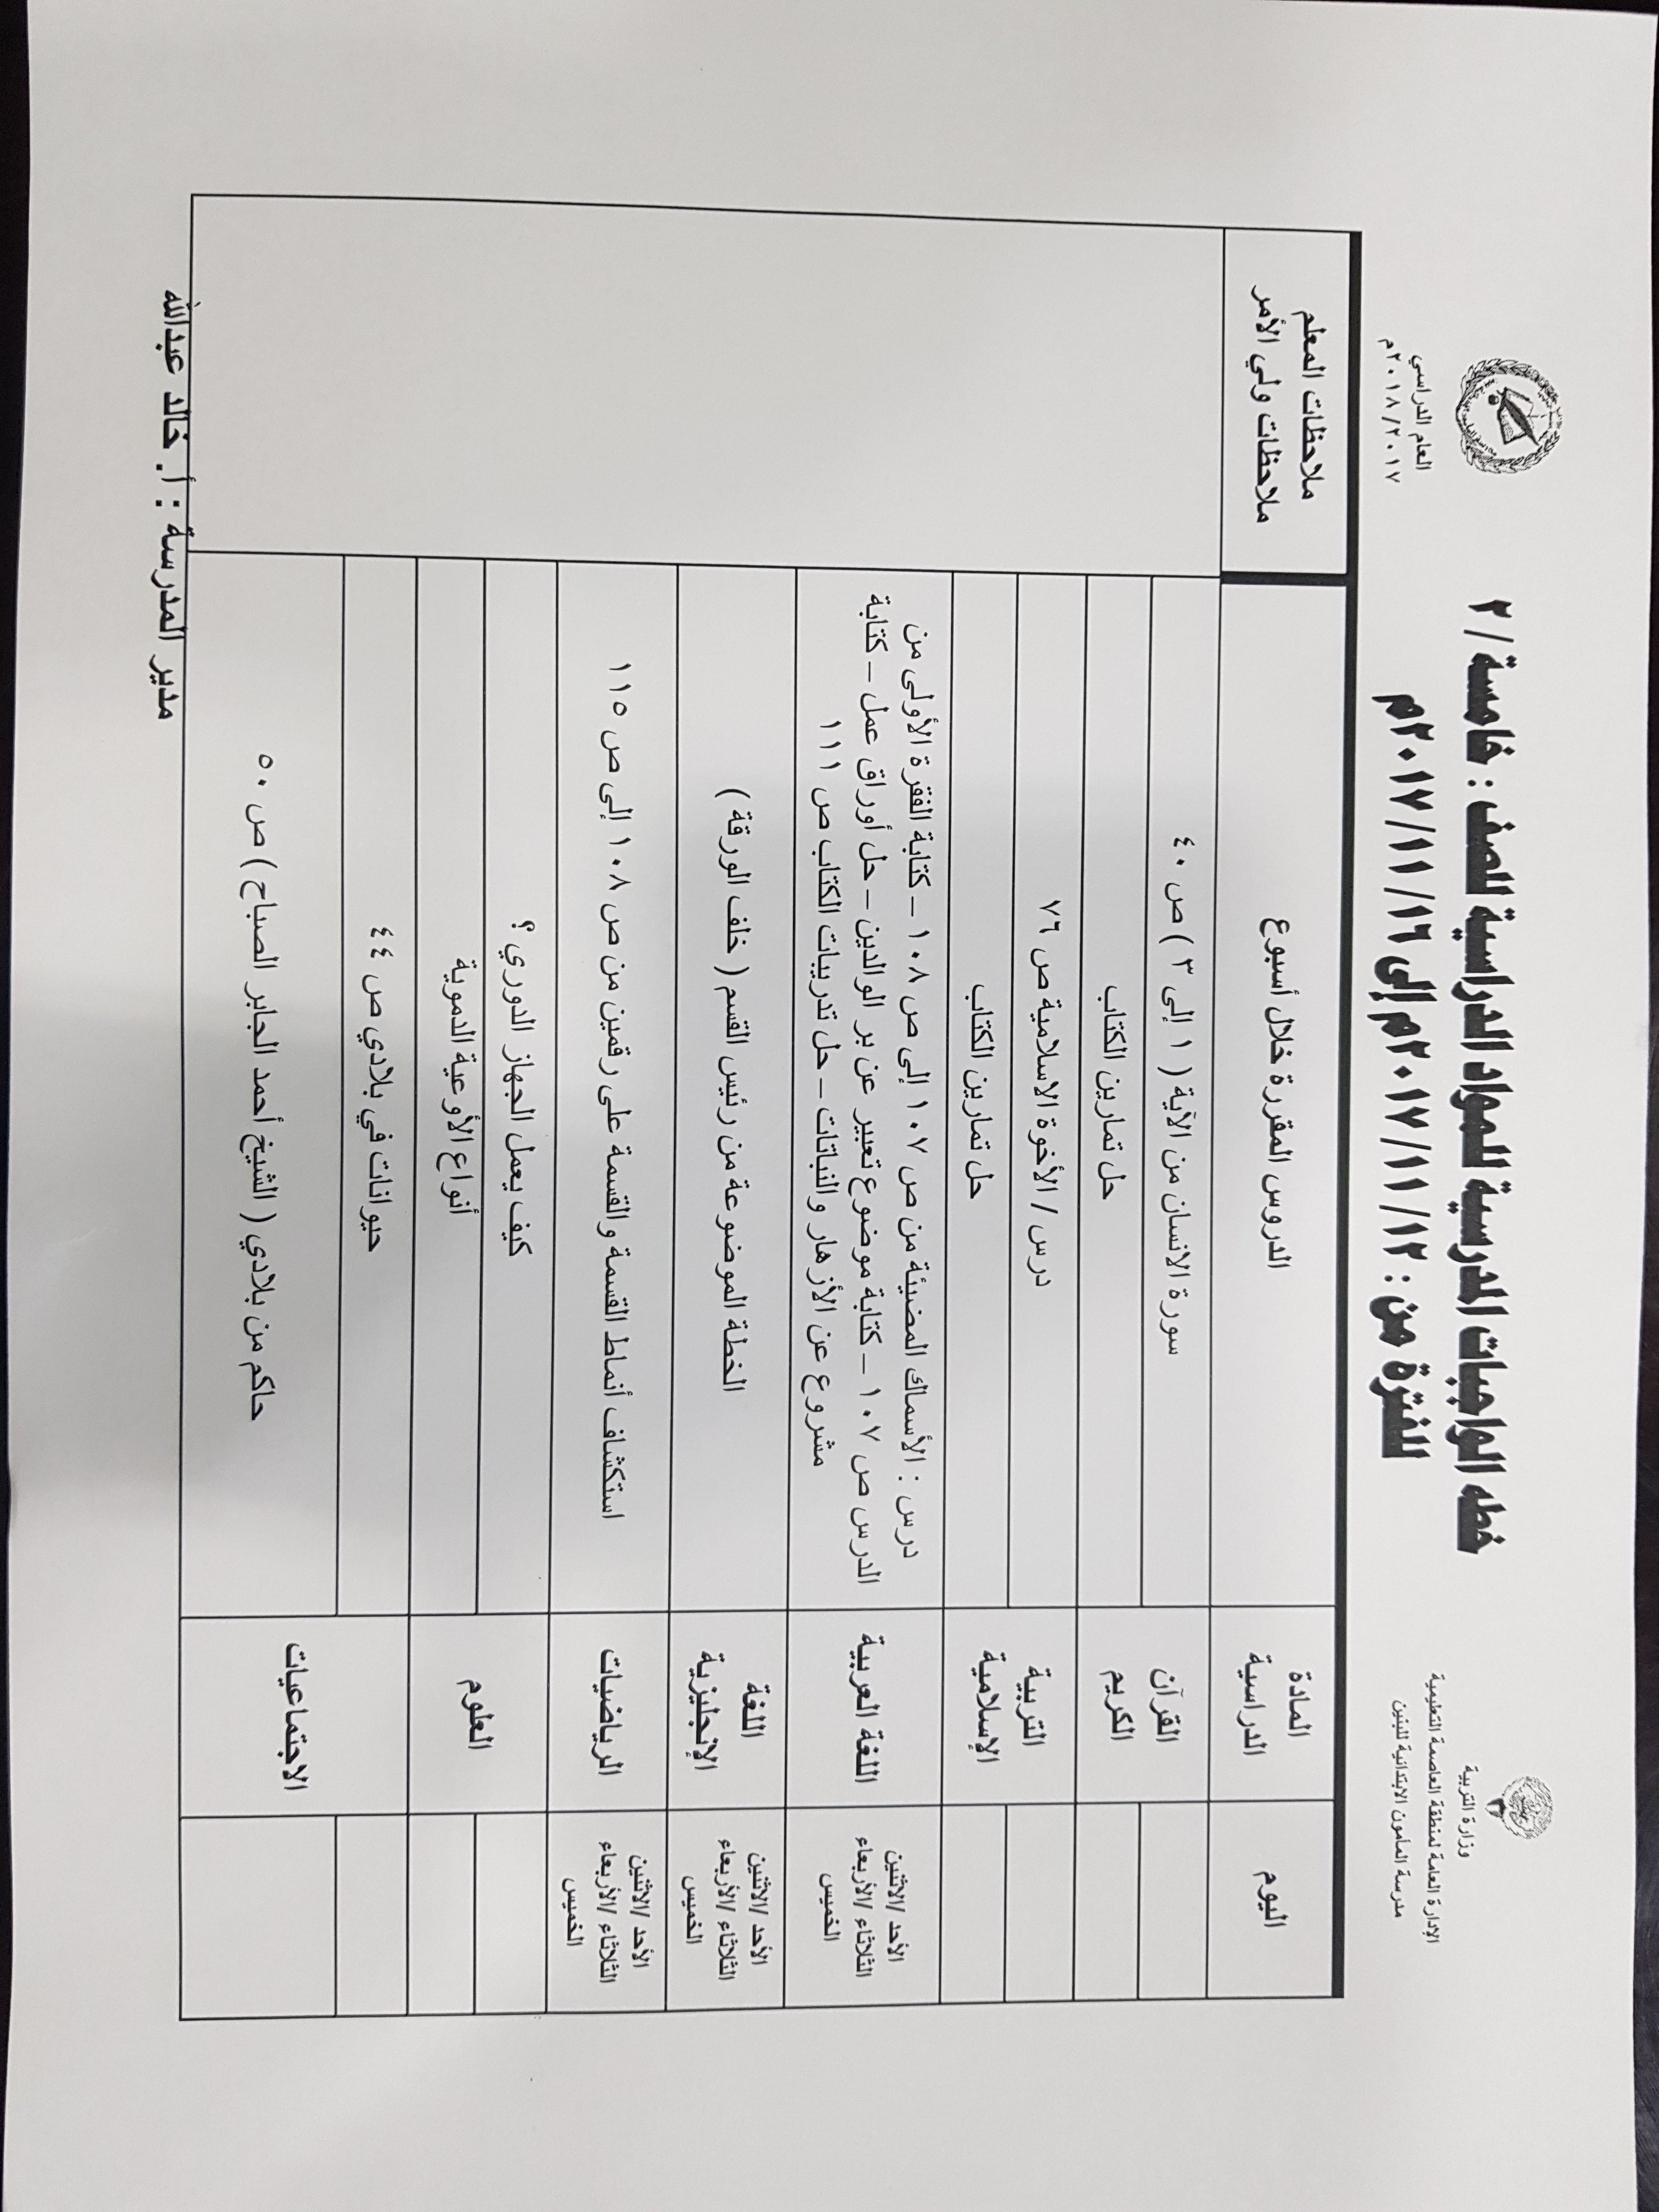 وزارة التربية
الإدارة العامة لمنطقة العاصمة التعليمية
مدرسة المامون الابتدائية للبنين
خطه الواجبات المدرسية للمواد الدراسية للصف : خامسة / ٢
للفترة من : ١٢ /١١ /٢٠١٧م إلى ١٦ /١١ /٢٠١٧م
العام الدراسي
٢٠١٨/٢٠١٧م
اليوم
المادة
الدراسية
الدروس المقررة خلال أسبوع
ملاحظات المعلم
ملاحظات ولي الأمر
القرآن
الكريم
سورة الانسان من الآية ( ١ إلى ٣ ) ص ٤٠
حل تمارين الكتاب
التربية
الإسلامية
درس / الأخوة الاسلامية ص ٧٦
حل تمارين الكتاب
الأحد /الاثنين
الثلاثاء /الأربعاء
الخميس
اللغة العربية
درس : الأسماك المضيئة من ص ١٠٧ إلى ص ١٠٨ – كتابة الفقرة الأولى من
الدرس ص ١٠٧ – كتابة موضوع تعبير عن بر الوالدين – حل أوراق عمل – كتابة
مشروع عن الأزهار والنباتات – حل تدريبات الكتاب ص ١١١
الأحد /الاثنين
الثلاثاء /الأربعاء
الخميس
اللغة
الإنجليزية
الخطة الموضوعة من رئيس القسم ( خلف الورقة )
الأحد /الاثنين
الثلاثاء /الأربعاء
الخميس
الرياضيات
استكشاف أنماط القسمة والقسمة على رقمين من ص ١٠٨ إلى ص ١١٥
العلوم
كيف يعمل الجهاز الدوري ؟
أنواع الأوعية الدموية
الاجتماعيات
حيوانات في بلادي ص ٤٤
حاكم من بلادي ( الشيخ أحمد الجابر الصباح ) ص ٥٠
مدير المدرسة : أ. خالد عبدالله